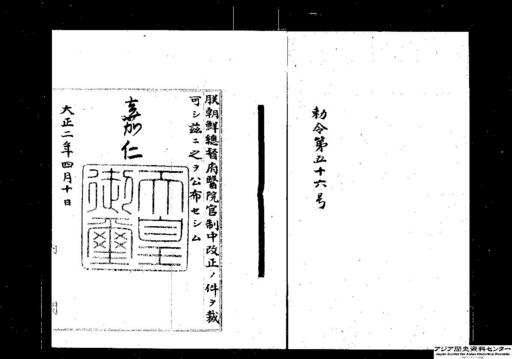 勅令第五十六号
朕朝鮮總督府醫院官制中改正ノ件ヲ裁
可シ茲ニ之ヲ公布セシム
嘉仁
天皇
御璽
大正二年四月十日
内
閣
アジア歴史資料センター
Japan Center for Asian Historical Records